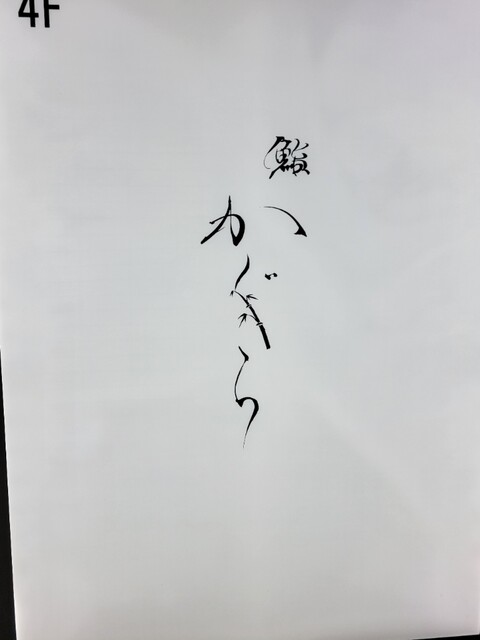 4F
鮨
かぐら